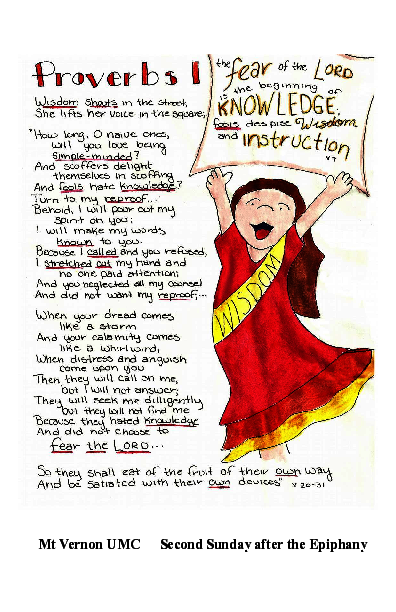 Proverbs 1
the fear of the LORD
is the beginning of
KNOWLEDGE;
fools despise Wisdom
and instruction
v 7
Wisdom shouts in the street,
She lifts her voice in the square;
"How long, O naive ones,
will you love being
simple-minded?
And scoffers delight
themselves in scoffing
And fools hate knowledge?
Turn to my reproof...
Behold, I will pour out my
spirit on you;
I will make my words
known to you.
Because I called and you refused,
I stretched out my hand and
no one paid attention;
And you neglected all my counsel
And did not want my reproof;...
When your dread comes
like a storm
And your calamity comes
like a whirlwind,
When distress and anguish
come upon you
Then they will call on me,
but I will not answer;
They will seek me diligently
but they will not find me
Because they hated knowledge
And did not choose to
fear the LORD...
So they shall eat of the fruit of their own way
And be satisfied with their own devices" v 20-31
WISDOM
Mt Vernon UMC Second Sunday after the Epiphany